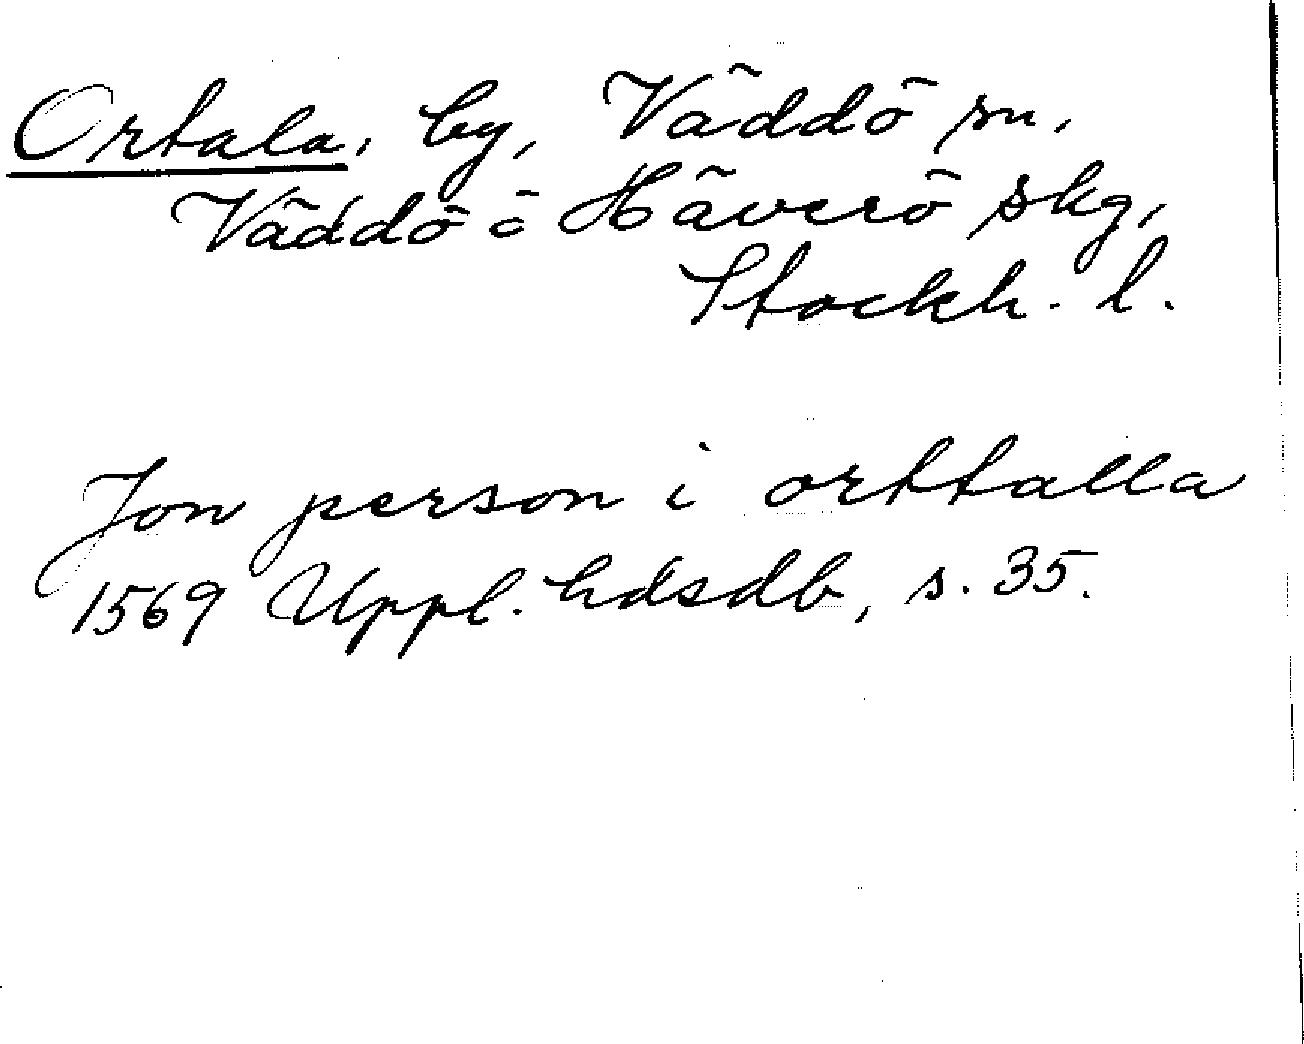 Ortala, by, Väddö sn,
Väddö o Häverö skg,
Stockh. l.
Jon person i orttalla
1569 Uppl. hdsdb, s. 35.